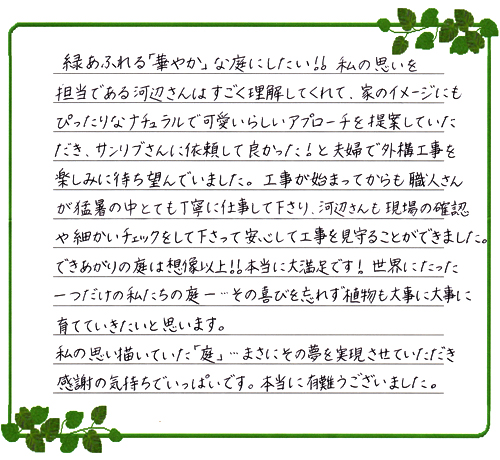 緑あふれる「華やか」な庭にしたい!! 私の思いを
担当である河辺さんはすごく理解してくれて、家のイメージにも
ぴったりなナチュラルで可愛いらしいアプローチを提案していた
だき、サンリブさんに依頼して良かった!と夫婦で外構工事を
楽しみに待ち望んでいました。工事が始まってからも職人さん
が猛暑の中とても丁寧に仕事して下さり、河辺さんも現場の確認
や細かいチェックをして下さって安心して工事を見守ることができました。
できあがりの庭は想像以上!!本当に大満足です!世界にたった
一つだけの私たちの庭ー…その喜びを忘れず植物も大事に大事に
育てていきたいと思います。
私の思い描いていた「庭」…まさにその夢を実現させていただき
感謝の気持ちでいっぱいです。本当に有難うございました。